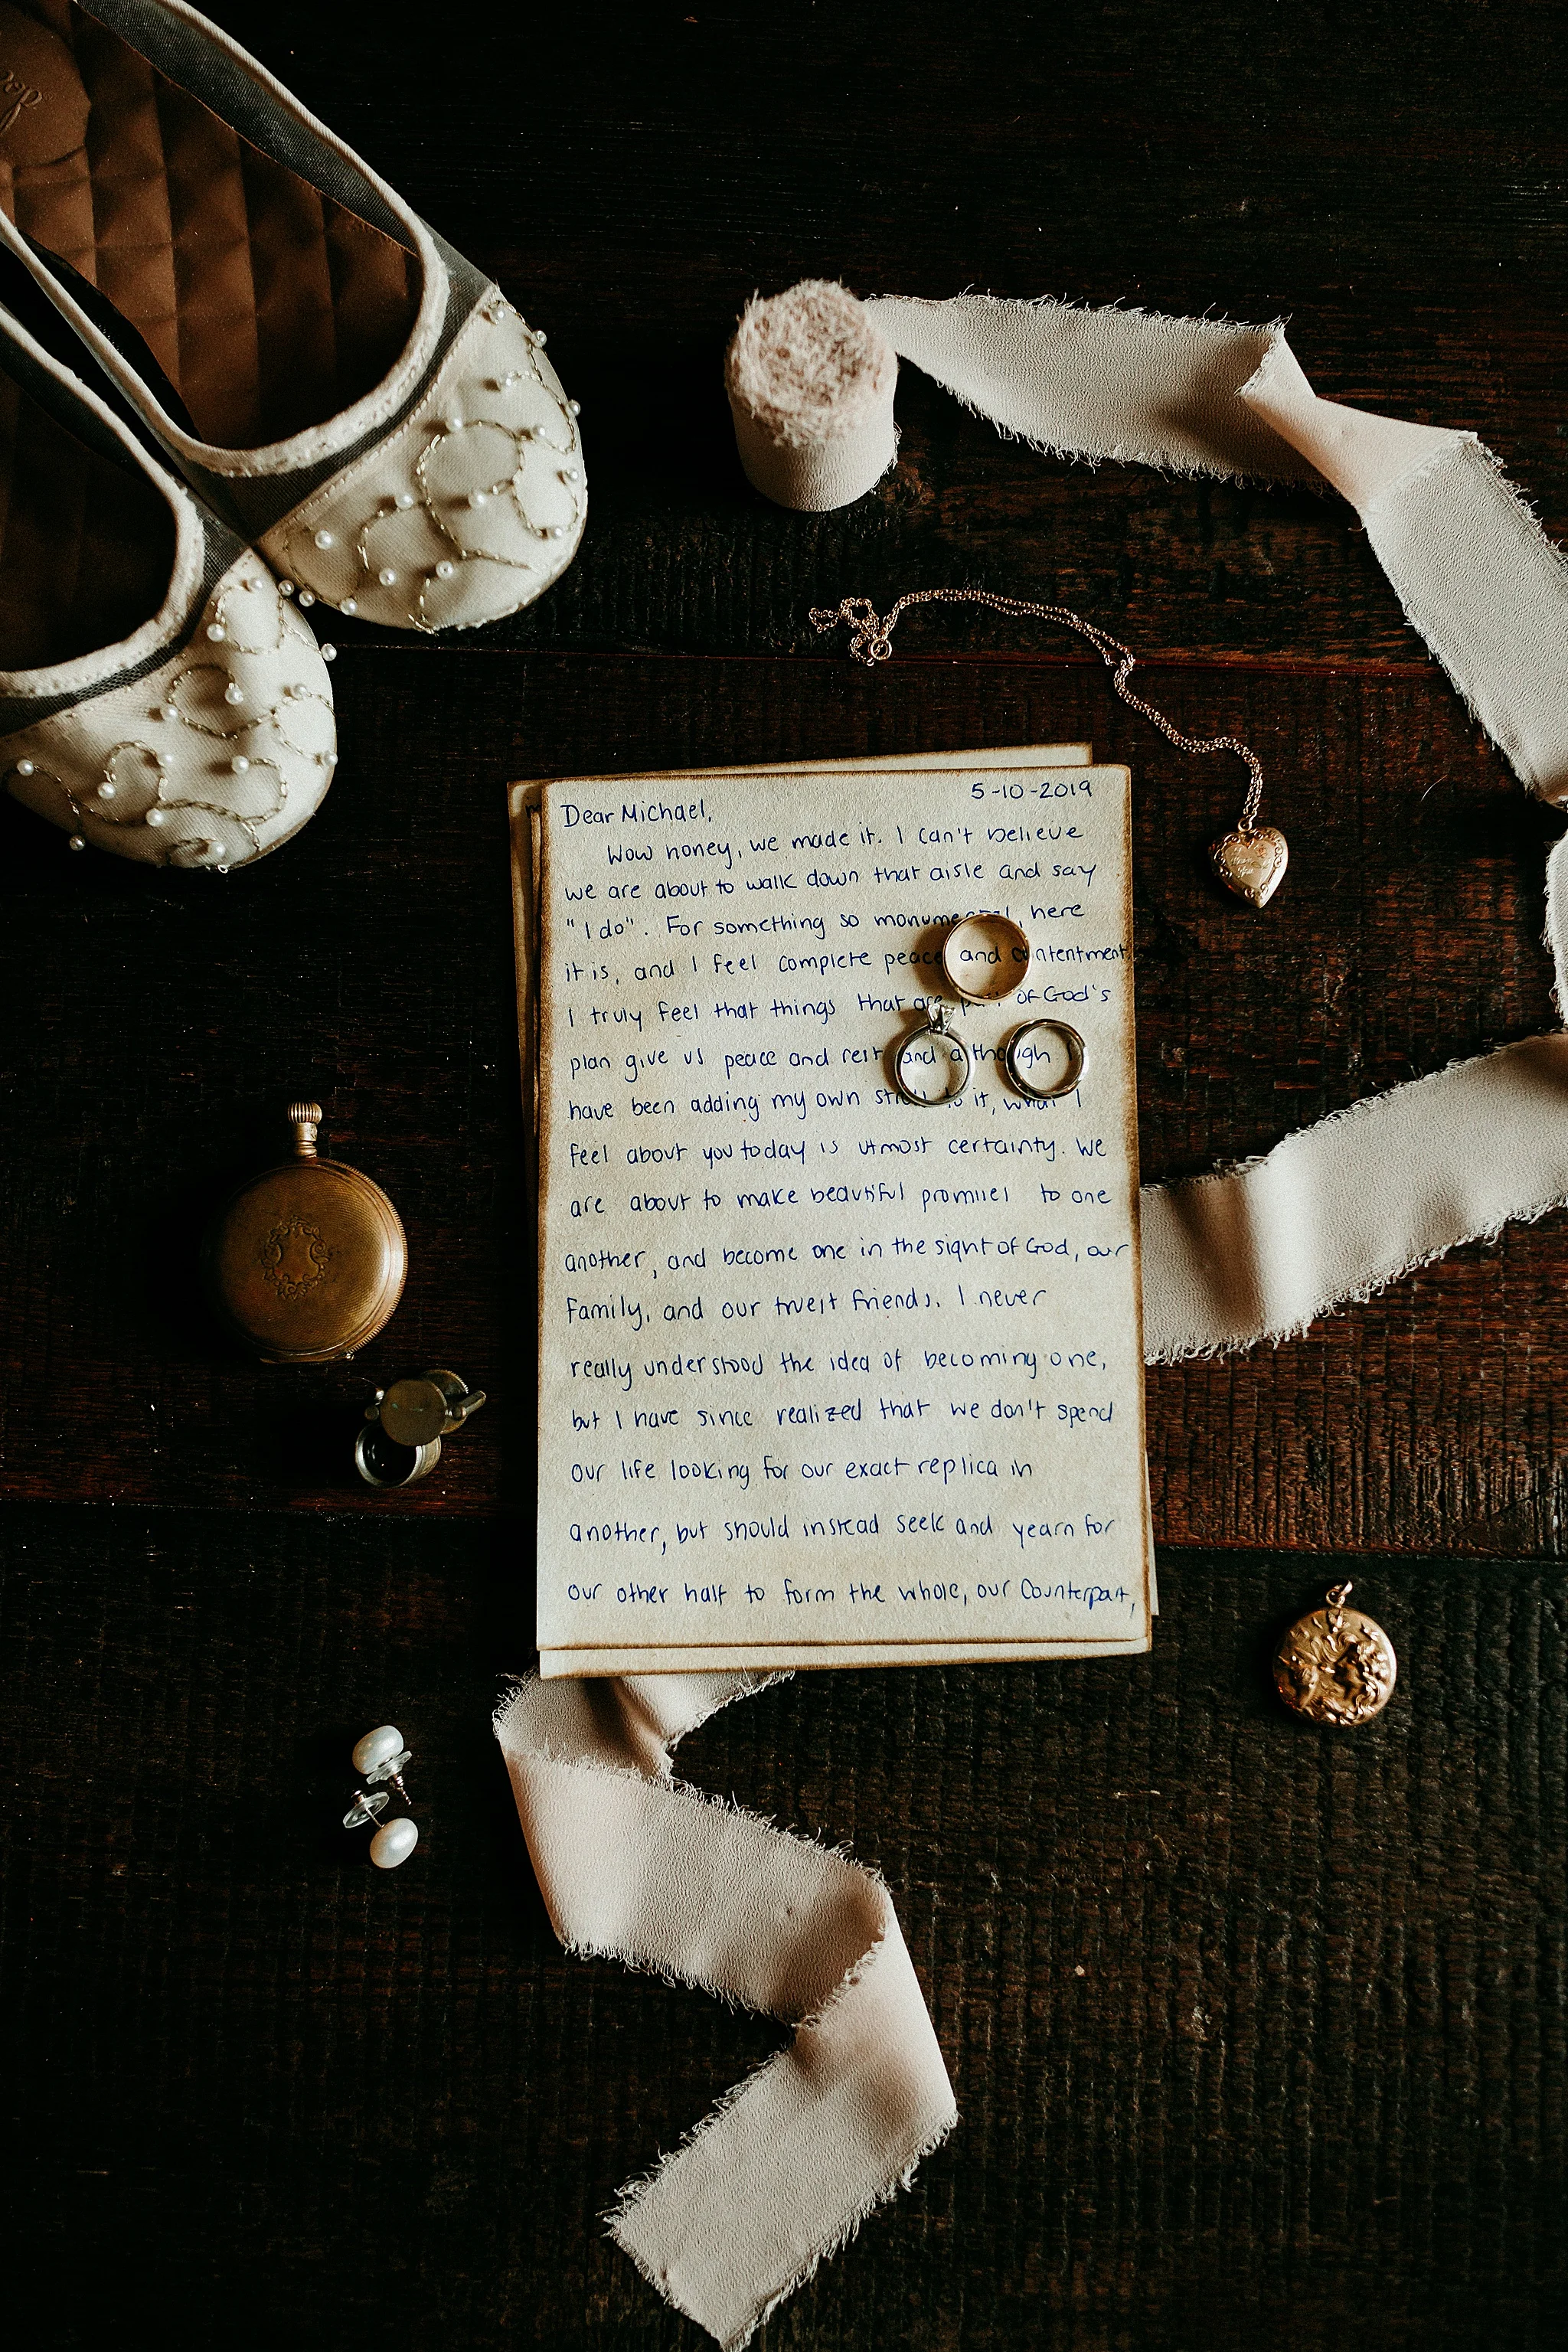 5-10-2019
Dear Michael,
Wow honey, we made it. I can't believe
we are about to walk down that aisle and say
"I do". For something so monumental, here
it is, and I feel complete peace and contentment.
I truly feel that things that are part of God's
plan give us peace and rest and although I
have been adding my own to it, what I
feel about you today is utmost certainty. We
are about to make beautiful promises to one
another, and become one in the sight of God, our
family, and our truest friends. I never
really understood the idea of becoming one,
but I have since realized that we don't spend
our life looking for our exact replica in
another, but should instead seek and yearn for
our other half to form the whole, our counterpart,